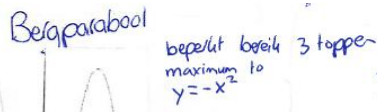 Bergparabool
beperkt bereik 3 toppen
maximum to
y = -x²